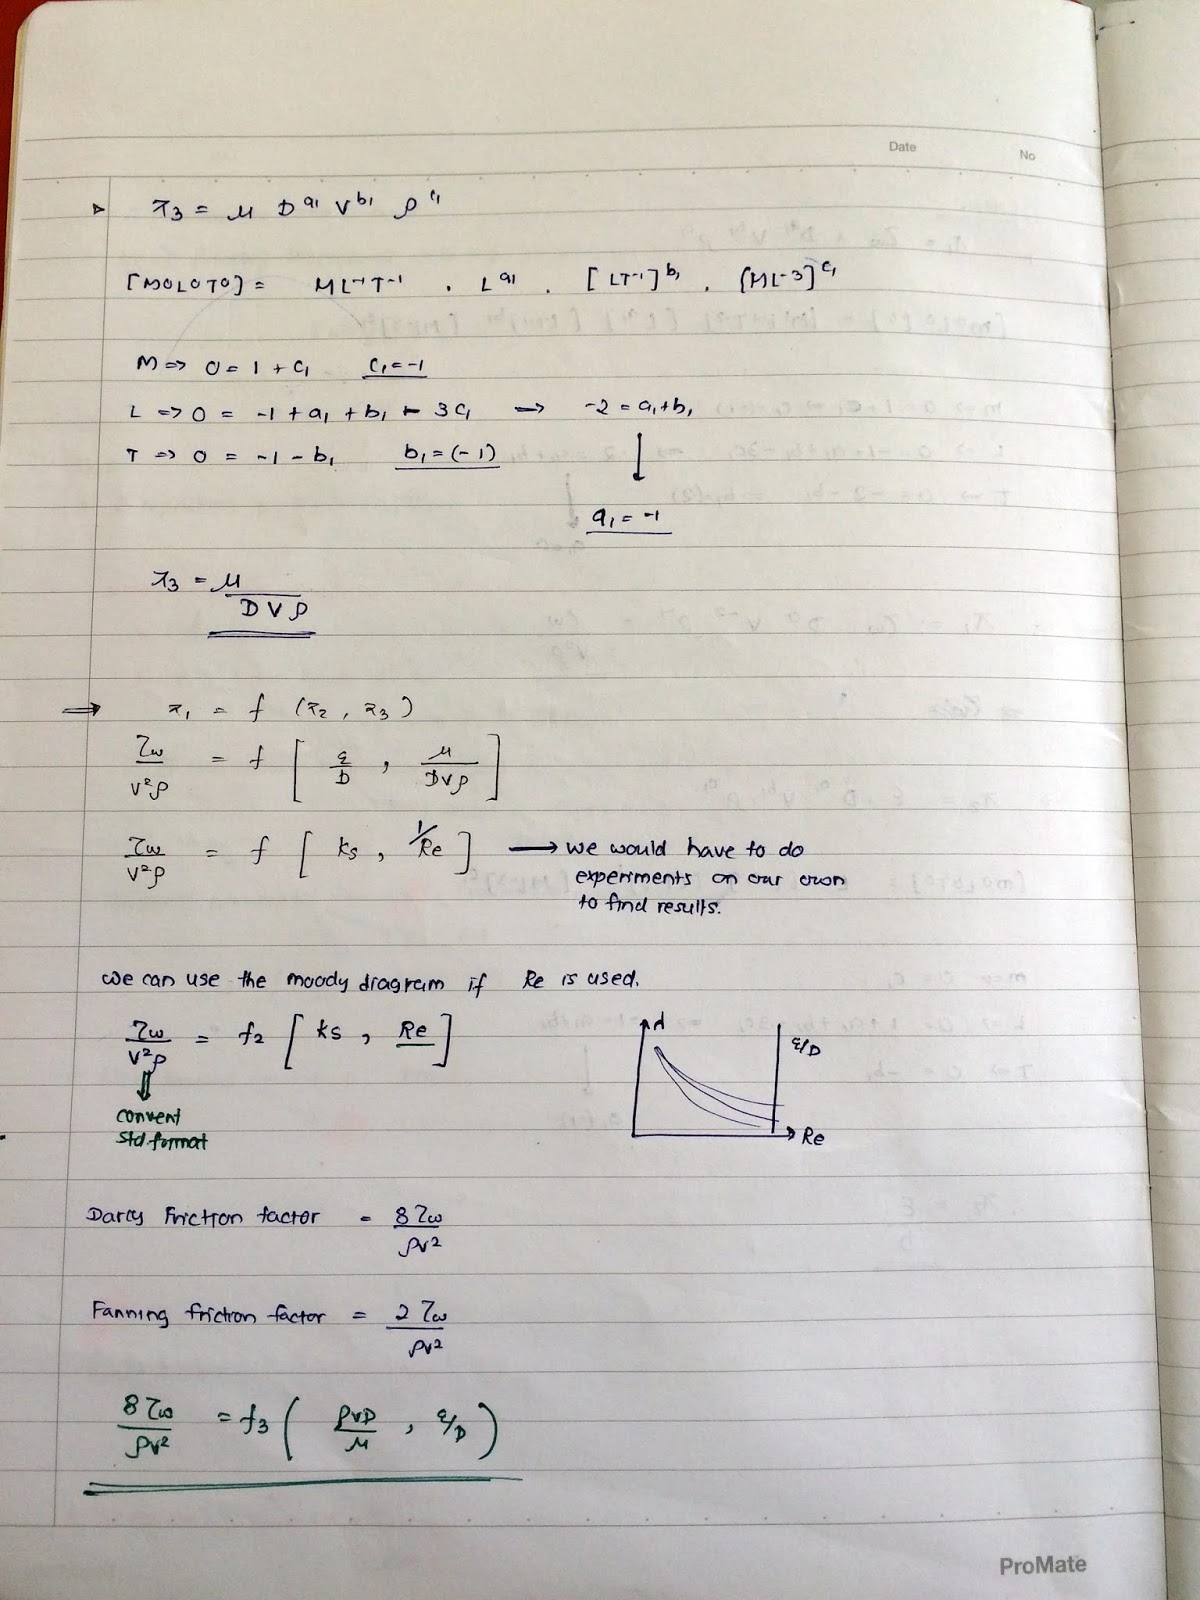 Date
No
▷ π3 = μ D^a1 V^b1 ρ^c1
[M0L0T0] = ML^-1T^-1 . L^a1 . [LT^-1]^b1 . [ML-3]^c1
M => 0 = 1 + c1 c1 = -1
L => 0 = -1 + a1 + b1 - 3c1 → -2 = a1 + b1
T => 0 = -1 - b1 b1 = (-1)
↓
a1 = -1
π3 = μ / DVρ
⇒ π1 = f (π2, π3)
τω / V²ρ = f [ ε/D , μ / DVρ ]
τω / V²ρ = f [ ks , 1/Re ] → we would have to do
experiments on our own
to find results.
we can use the moody diagram if Re is used.
τω / V²ρ = f2 [ ks , Re ]
⇓
convert
std. format
ε/D
Re
Darcy Friction factor = 8τω / ρv²
Fanning friction factor = 2τω / ρv²
8τω / ρv² = f3 ( ρvD / μ , ε/D )
ProMate